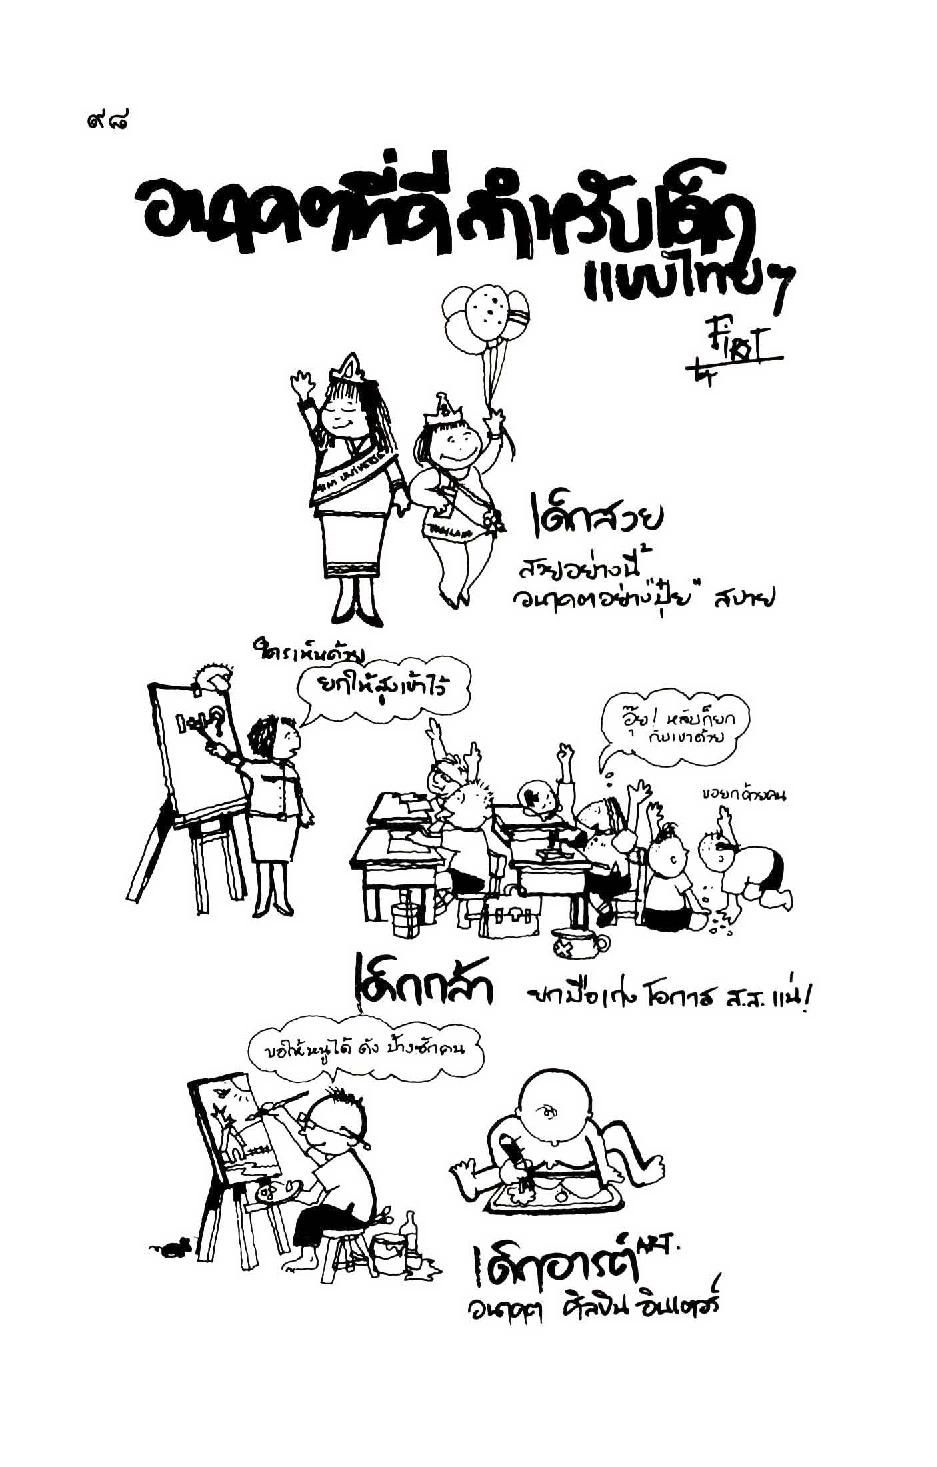 ๙๘
อนาคตที่ดีสำหรับเด็ก
แบบไทยๆ
by FIRST
MISS UNIVERSE
THAILAND
เด็กสวย
สวยอย่างนี้
อนาคตอย่าง"ปุ๋ย" สบาย
ใครเห็นด้วย
ยกให้สูงเข้าไว้
1+1=?
อุ๊ย! หลับก็ยก
กับเขาด้วย
ขอยกด้วยคน
เด็กกล้า ยกมือเก่ง โอกาส ส.ส. แน่!
ขอให้หนูได้ ดัง บ้างซักคน
เด็กอาร์ต ART.
อนาคต ศิลปิน อินเตอร์